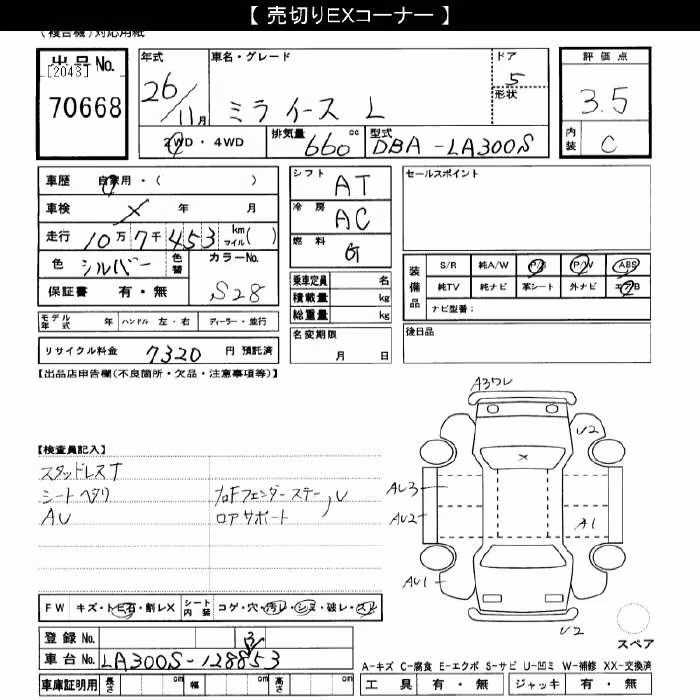 【 売切りEXコーナー 】
(複合機)対応用紙
出品No.
[2043]
70668
年式
26/11月
車名・グレード
ミライース L
ドア
5
形状
評価点
3.5
内装
C
2WD・4WD
排気量
660 cc
型式
DBA-LA300S
車歴 自家用・( )
車検 × 年 月
走行 10万7千453 km マイル( )
色 シルバー
色替
カラーNo.
S28
保証書 有・無
モデル年式 年 ハンドル 左・右 ディーラー・並行
リサイクル料金 7320 円 預託済
シフト AT
冷房 AC
燃料 G
乗車定員 名
積載量 kg
総重量 kg
名変期限
月 日
セールスポイント
装備品
S/R 純A/W P/S P/W ABS
純TV 純ナビ 革シート 外ナビ エアB
ナビ型番:
後日品
【出品店申告欄(不良箇所・欠品・注意事項等)】
【検査員記入】
スタッドレスナ
シートヘタリ
AU
フロFフェンダーステー,U
ロアサポート
A3ワレ
U2
×
AU3
AU2
A1
AU1
U2
スペア
FW キズ・トビ石・割レX シート内装 コゲ・穴・汚レ・シミ・破レ・スレ
登録No.
3
車台No. LA300S-128853
車庫証明用 長さ cm 幅 cm 高さ cm
A-キズ C-腐食 E-エクボ S-サビ U-凹ミ W-補修 XX-交換済
工具 有・無 ジャッキ 有・無